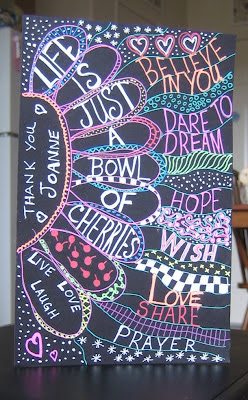 THANK YOU
JOANNE
LIFE
IS
JUST
A
BOWL
OF
CHERRIES
LIVE LOVE
LAUGH
BELIEVE
IN YOU
DARE TO
DREAM
HOPE
WISH
LOVE
SHARE
PRAYER